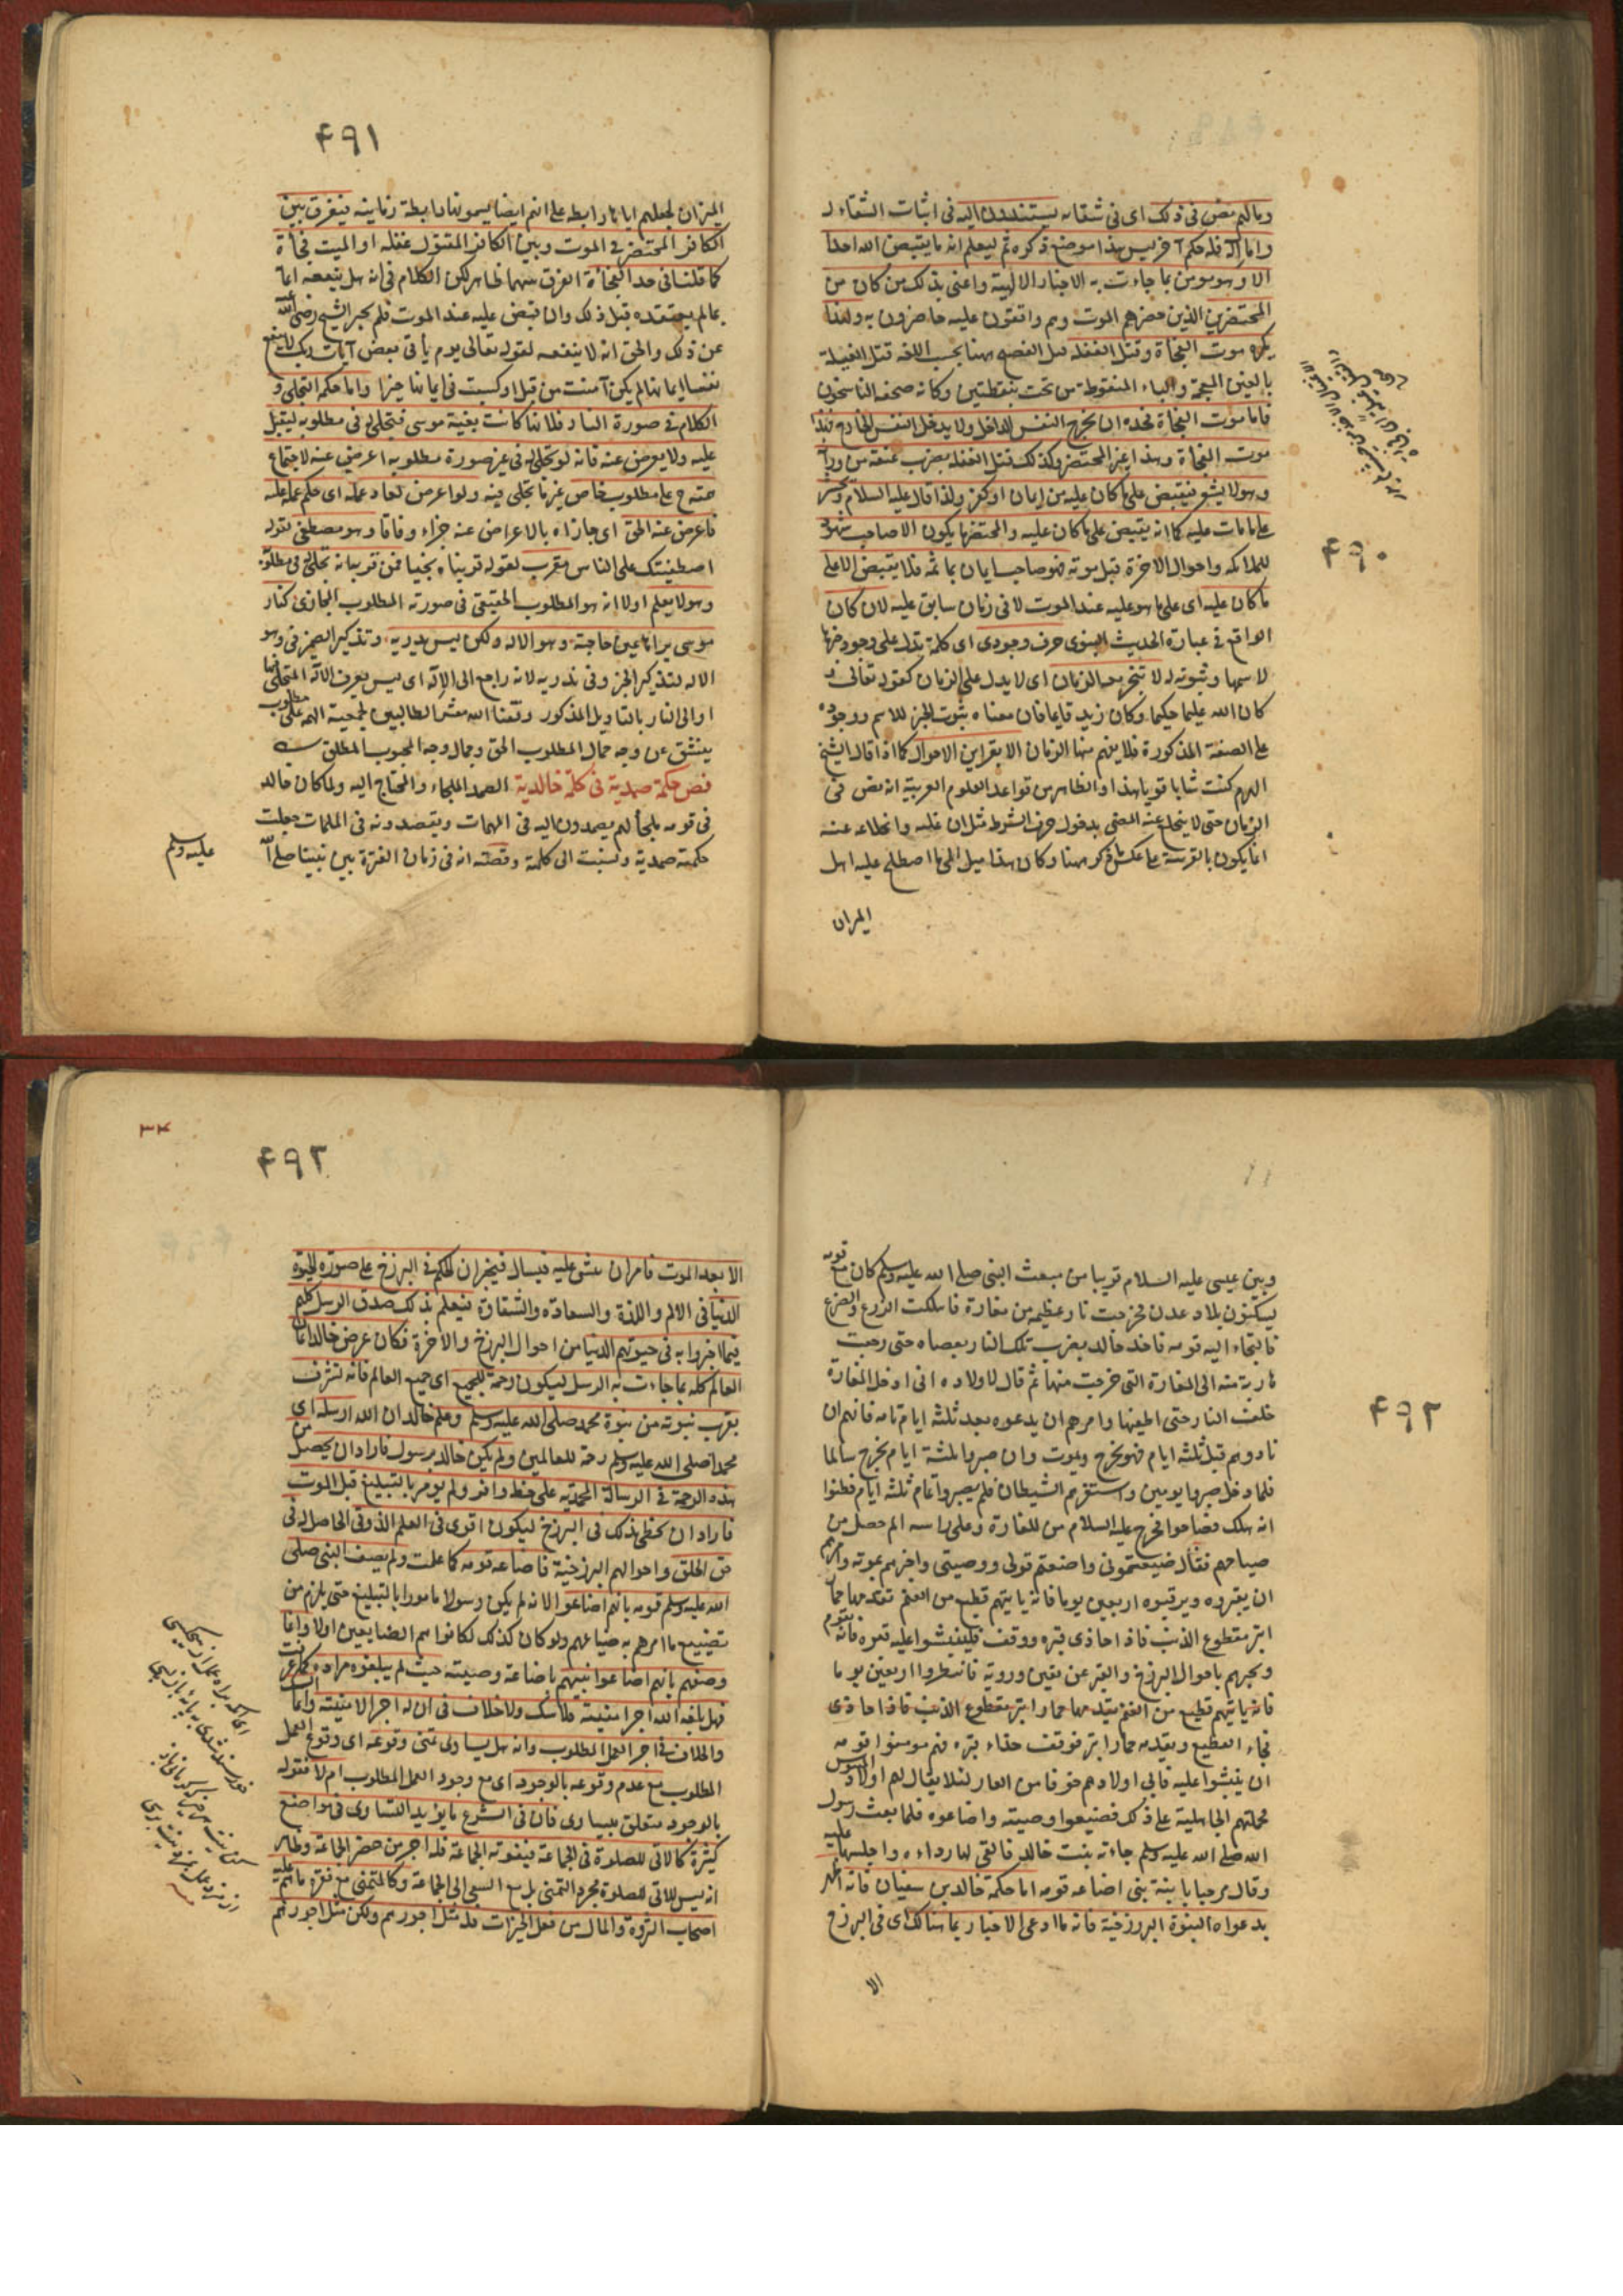 وما لهم نص فى ذلك اى فى شقائه يستندون اليه فى اثبات الشقاء له
واما اله فله حكم آخر ليس هذا موضع ذكره ثم ليعلم انه ما يقبض الله احدا
الا وهو مومن بما جاءت به الاخبار الالهية واعنى بذلك من كان من
المحتضرين الذين حضرهم الموت وهم واقعون عليه حاضرون به ولهذا
يكره موت الفجأة وقتل الغفلة قيل الفصيح ههنا بحسب اللغة قتل الغيلة
بالغين المعجمة والياء المنقوطة من تحت بنقطتين وكانه صحفه الناسخون
فاما موت الفجأة فحده ان يخرج النفس الداخل ولا يدخل النفس الخارج فهذا
موت الفجأة وهذا غير المحتضر وكذلك قتل الغفلة بضرب عنقه من ورائه
وهو لا يشعر فيقبض على ما كان عليه من ايمان او كفر ولذا قال عليه السلام ويحشر
على ما مات عليه كما انه يقبض على ما كان عليه والمحتضر ما يكون الا صاحب شهود
للملائكة واحوال الآخرة قبل موته فهو صاحب ايمان بما ثمه فلا يقبض الا على
ما كان عليه اى على ما هو عليه عند الموت لا فى زمان سابق عليه لان كان
الواقع فى عبارة الحديث النبوى حرف وجودى اى كلمة تدل على وجود خبرها
لاسمها وثبوته له لا تنجر معه الزمان اى لا يدل على الزمان كقوله تعالى و
كان الله عليما حكيما وكان زيد قايما فان معناه ثبوت الخبر للاسم ووجوده
على الصفة المذكورة فلا يفهم منها الزمان الا بقراين الاحوال كما اذا قال الشيخ
الهرم كنت شابا قويا هذا والظاهر من قواعد العلوم العربية انه نص فى
الزمان حتى لا ينخلع عنه المضى بدخول حرف الشرط مثل ان عليه وانخلاعه عنه
انما يكون بالقرينة على عكس ما ذكر ههنا وكان هذا ميل الى ما اصطلح عليه اهل
الميزان
۴۹۰
۴۹۱
الميزان لجعلهم اياها رابطه على انهم ايضا يسمونها رابطة زمانية فيفرق بين
الكافر المحتضر فى الموت وبين الكافر المقتول غفلة او الميت فجأة
كما قلنا فى حد الفجأة الفرق بينهما ظاهر لكن الكلام فى انه هل ينفعه ايمانه
بما لم يعتقده قبل ذلك وان قبض عليه عند الموت فلم يخبر الشيخ رضى الله
عن ذلك والحق انه لا ينفعه لقوله تعالى يوم يأتى بعض آيات ربك لا ينفع
نفسا ايمانها لم يكن آمنت من قبل او كسبت فى ايمانها خيرا واما حكمة التجلى و
الكلام فى صورة النار فلانها كانت بغية موسى فتجلى له فى مطلوبه ليقبل
عليه ولا يعرض عنه فانه لو تجلى له فى غير صورة مطلوبه اعرض عنه لاجتماع
همته على مطلوب خاص غير ما تجلى فيه ولو اعرض لعاد عمله اى حكم عمله عليه
فاعرض عنه الحق اى جازاه بالاعراض عنه جزاء وفاقا وهو مصطفى بقوله
اصطفيتك على الناس مقرب لقوله قربناه نجيا فمن قربه انه تجلى له فى مطلوبه
وهو لا يعلم اولا انه هو المطلوب الحقيقى فى صورته المطلوب المجازى كنار
موسى يراها عين حاجته وهو الاله ولكن ليس يدريه وتذكير الضمير فى وهو
الاله لتذكير الخبر وفى يدريه لانه راجع الى الاله اى ليس يعرف الاله المتجلى فيها
او الى النار بالتاويل المذكور وفقنا الله معشر الطالبين لجمعية الهمة على مطلوب
ينشق عن وجه جمال المطلوب الحق وجمال وجه المحبوب المطلق
فص حكمة صمدية فى كلمة خالدية الصمد الملجاء والمحتاج اليه ولما كان خالد
فى قومه ملجأ لهم يصمدون اليه فى المهمات ويقصدونه فى الملمات جعلت
حكمته صمدية ونسبت الى كلمته وقصته انه فى زمان الفترة بين نبينا صلى الله
عليه وسلم
وبين عيسى عليه السلام قريبا من مبعث النبى صلى الله عليه وسلم كان مع قومه
يسكنون بلاد عدن فخرجت نار عظيمة من مغارة فاهلكت الزرع والضرع
فالتجاء اليه قومه فاخذ خالد يضرب تلك النار بعصاه حتى رجعت
هاربة منه الى المغارة التى خرجت منها ثم قال لاولاده انى ادخل المغارة
خلف النار حتى اطفيها وامرهم ان يدعوه بعد ثلثة ايام تامة فانهم ان
نادوهم قبل ثلثة ايام فهو يخرج ويموت وان صبروا ثلثة ايام يخرج سالما
فلما دخل صبروا يومين واستفزهم الشيطان فلم يصبروا تمام ثلثة ايام فظنوا
انه هلك فصاحوا فخرج عليه السلام من المغارة وعلى راسه الم حصل من
صياحهم فقال ضيعتمونى واضعتم قولى ووصيتى واخبرهم بموته وامرهم
ان يقبروه ويرقبوه اربعين يوما فانه ياتيهم قطيع من الغنم تقدمها حمار
ابتر مقطوع الذنب فاذا حاذى قبره ووقف فلينبشوا عليه قبره فانه يقوم
ويخبرهم باحوال البرزخ والقبر عن يقين ورؤية فانتظروا اربعين يوما
فجاء القطيع وتقدمه حمار ابتر فوقف حذاء قبره فهم مومنوا قومه
ان ينبشوا عليه فابى اولادهم خوفا من العار لئلا يقال لهم اولاد المنبوش
فحملتهم الجاهلية على ذلك فضيعوا وصيته واضاعوه فلما بعث رسول
الله صلى الله عليه وسلم جاءته بنت خالد فالقى لها رداءه واجلسها عليه
وقال مرحبا بابنة نبى اضاعه قومه اما حكمة خالد بن سفيان فانه اظهر
بدعواه النبوة البرزخية فانه ما ادعى الاخبار بما هنالك اى فى البرزخ
الا
۴۹۲
۴۹۳
۳۴
الا بعد الموت فامر ان ينبش عليه فيسال فيخبر ان الحكم فى البرزخ على صورة الحيوة
الدنيا فى الالم واللذة والسعادة والشقاوة فيعلم بذلك صدق الرسل كلهم
فيما اخبروا به فى حيوتهم الدنيا من احوال البرزخ والآخرة فكان غرض خالد ايمان
العالم كله بما جاءت به الرسل ليكون رحمة للجميع اى جميع العالم فانه تشرف
بقرب نبوته من نبوة محمد صلى الله عليه وسلم وعلم خالد ان الله ارسله اى
محمدا صلى الله عليه وسلم رحمة للعالمين ولم يكن خالد برسول فاراد ان يحصل من
هذه الرحمة فى الرسالة المحمدية على حظ وافر ولم يومر بالتبليغ قبل الموت
فاراد ان يحظى بذلك فى البرزخ ليكون اقوى فى العلم الذوقى الحاصل له فى
حق الخلق واحوالهم البرزخية فاضاعه قومه كما علمت ولم يصف النبى صلى
الله عليه وسلم قومه بانهم اضاعوا لانه لم يكن رسولا مامورا بالتبليغ حتى يلزم من
تضييع ما امرهم به ضياعهم ولو كان كذلك لكانوا هم الضايعين اولا وانما
وصفهم بانهم اضاعوا نبيهم باضاعة وصيته حيث لم يبلغوه مراده كما عرفت
فهل بلغه الله اجر امنيته فلا شك ولا خلاف فى ان له اجر الامنية وانما الشك
والخلاف فى اجر العمل المطلوب وانه هل يساوى تمنى وقوعه اى وقوع العمل
المطلوب مع عدم وقوعه بالوجود اى مع وجود العمل المطلوب ام لا فقوله
بالوجود متعلق بيساوى فان فى الشرع ما يؤيد التساوى فى مواضع
كثيرة كالآتى للصلوة فى الجماعة فيفوته الجماعة فله اجر من حضر الجماعة وظاهر
انه ليس للآتى للصلوة مجرد التمنى بل مع السعى الى الجماعة وكالمتمنى مع فقره ما هم عليه
اصحاب الثروة والمال من فعل الخيرات فله مثل اجورهم ولكن مثل اجورهم